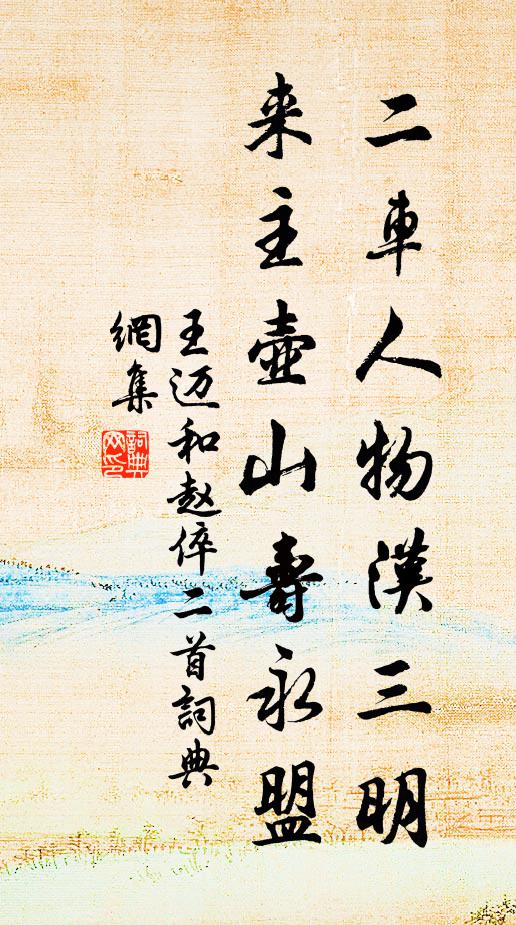 二車人物漢三明
来主壺山壽永盟
王迈和赵倅二首詞典
網集
詞典
网印